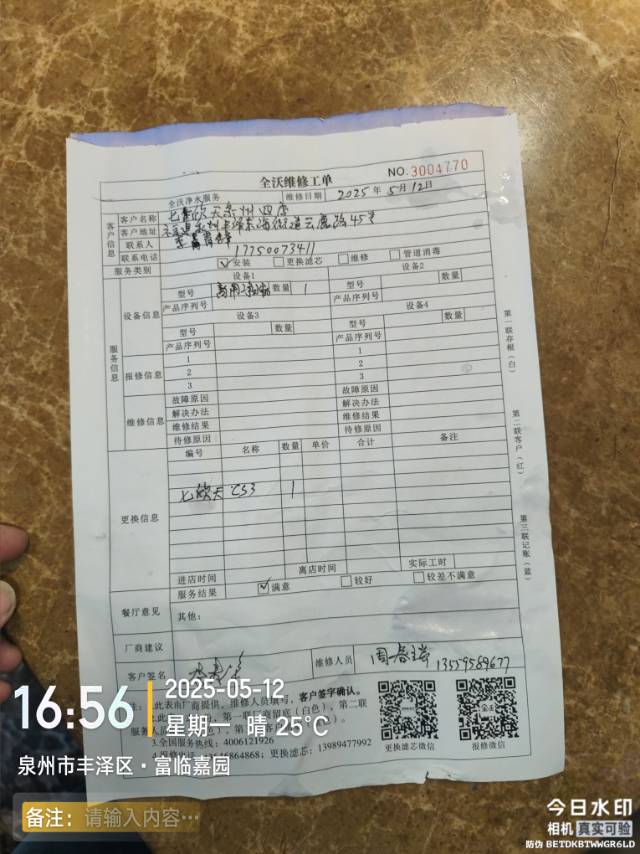 全沃维修工单
NO.3004770
全沃净水服务 维修日期 2025年5月12日
客户信息
客户名称 七欣天泉州四店
客户地址 泉州丰泽东海街道云鹿路45号
联系人
联系电话 17750073411
服务类别 ☑安装 □更换滤芯 □维修 □管道消毒
服务信息
设备信息
设备1 设备2
型号 数量 1 型号 数量
产品序列号 产品序列号
设备3 设备4
型号 数量 型号 数量
产品序列号 产品序列号
报修信息
1 1
2 2
3 3
维修信息
故障原因 故障原因
解决办法 解决办法
维修结果 维修结果
待修原因 待修原因
更换信息
编号 名称 数量 单价 合计 备注
七欣天 CS3 1
进店时间 离店时间 实际工时
服务结果 ☑满意 □较好 □较差不满意
餐厅意见 其他:
厂商建议
客户签名 维修人员 13559589677
注:1.此表由厂商提供，维修人员填写，客户签字确认。
第一联厂商留底(白色)，第二联
3.全国服务热线:4006121926
更换滤芯:13989477992
更换滤芯微信 报修微信
第一联存根(白)
第二联客户(红)
第三联记账(蓝)
16:56
2025-05-12
星期一 晴 25℃
泉州市丰泽区·富临嘉园
备注: 请输入内容…
今日水印
相机 真实可验
防伪 BETDKBTWWGR6LD